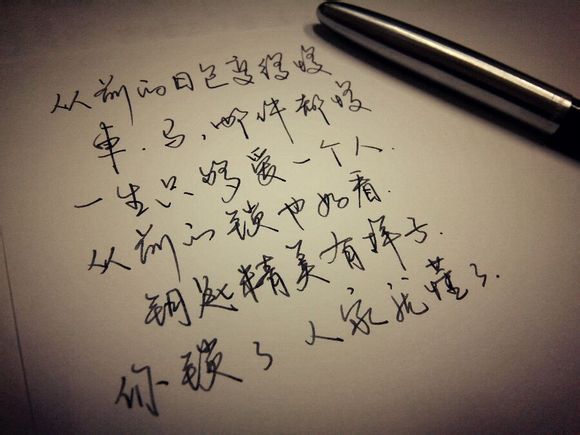 从前的日色变得慢
車.马,邮件都慢
一生只够爱一个人.
从前的锁也好看.
钥匙精美有样子.
你锁了人家就懂了.